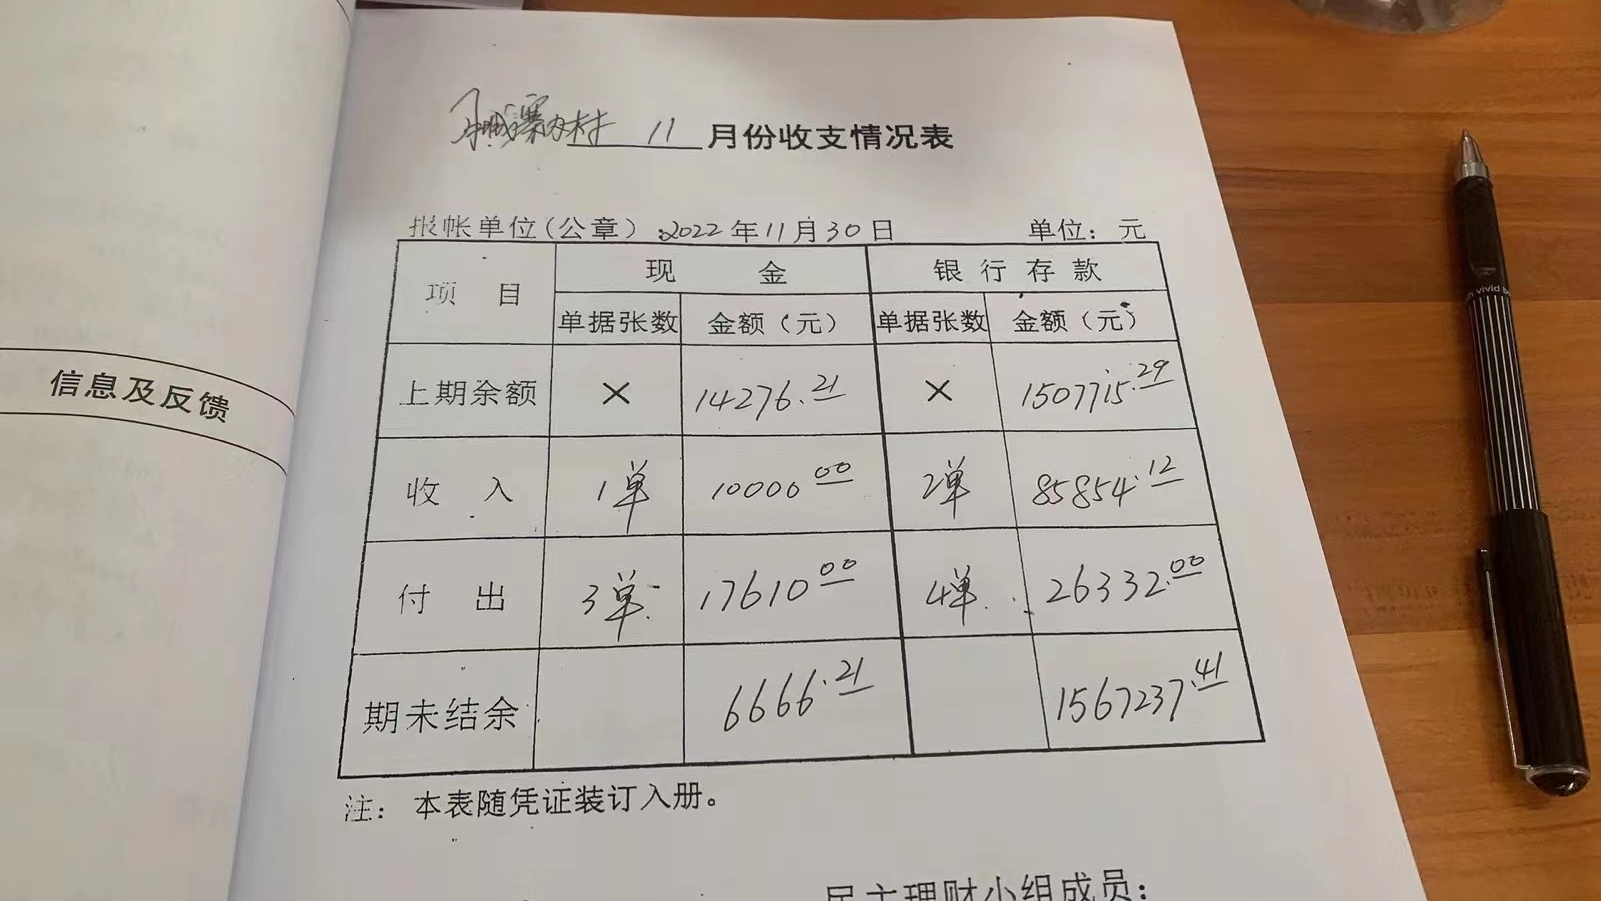 11月份收支情况表
报帐单位(公章):2022年11月30日 单位:元
项目 现金 银行存款
单据张数 金额(元) 单据张数 金额(元)
上期余额 × 14276.21 × 1507715.29
收入 1单 10000 00 2单 85854.12
付出 3单 17610 00 4单 26332.00
期未结余 6666.21 1567237.41
注:本表随凭证装订入册。
民主理财小组成员:
信息及反馈